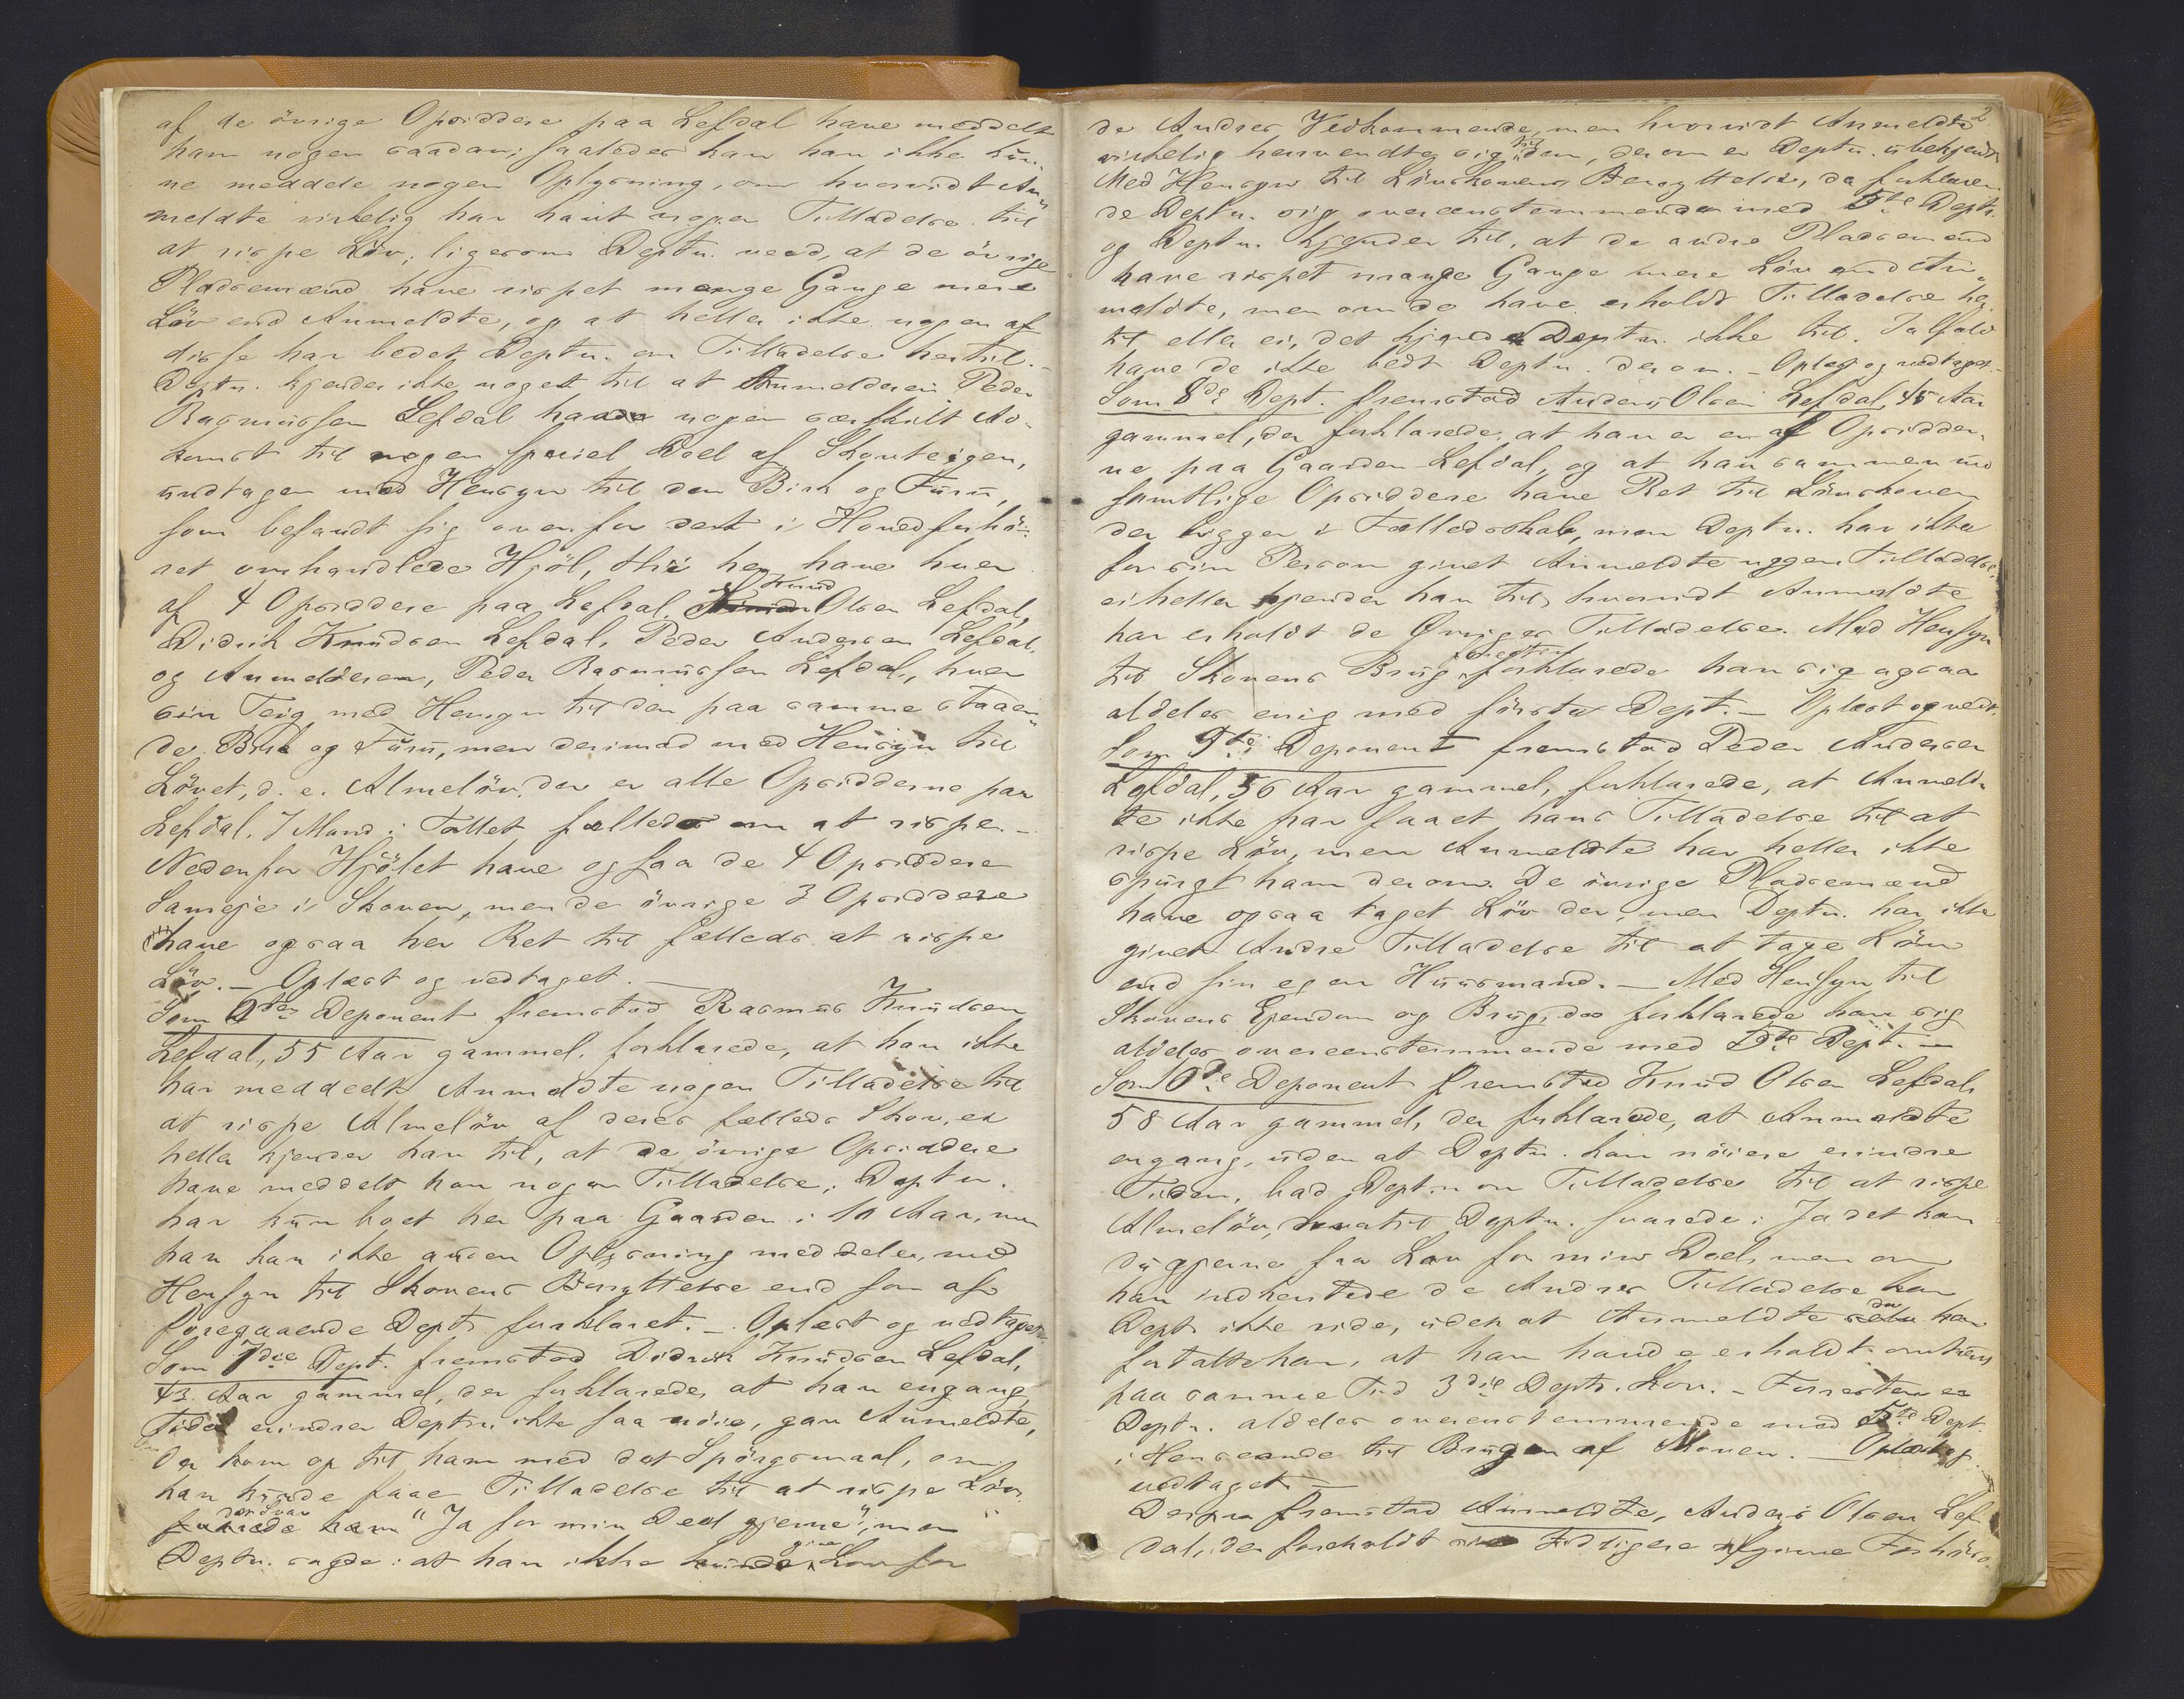 af de övrige Opsiddere paa Lefdal have meddelt
ham nogen saadan; saaledes kan han ikke kun-
ne meddele nogen Oplysning, om hvorvidt An-
meldte virkelig har havt nogen Tilladelse til
at rispe Löv, ligesom Deptn. veed, at de övrige
Pladsemænd have rispet mange Gange mere
Löv end Anmeldte, og at heller ikke nogen af
disse har bedet Deptn. om Tilladelse hertil. –
Deptn. kjender ikke noget til at Anmelderen Peder
Rasmussen Lefdal havde nogen særskilt Ad-
komst til nogen speciel Deel af Skovteigen,
undtagen med Hensyn til den Birk og Furu,
som befandt sig ovenfor det i Hovedforhö-
ret omhandlede Hjöl, thi her have hver
af 4 Opsiddere paa Lefdal, Knud Olsen Lefdal,
Didrik Knudsen Lefdal, Peder Andersen Lefdal,
og Anmelderen, Peder Rasmussen Lefdal, hver
sin Teig med Hensyn til den paa samme staaen-
de Birk og Furu, men derimod med Hensyn til
Lövet, d. e. Almelöv, der er alle Opsidderne paa
Lefdal, 7 Mand i Tallet fælleds om at rispe. –
Nedenfor Hjölet have ogsaa de 4 Opsiddere
Sameje i Skoven, men de övrige 3 Opsiddere
have ogsaa her Ret til fælleds at rispe
Löv. – Oplæst og vedtaget. –
Som 6te Deponent fremstod Rasmus Knudsen
Lefdal, 55 Aar gammel, forklarede, at han ikke
har meddelt Anmeldte nogen Tilladelse til
at rispe Almelöv af deres fælleds Skov, ei
heller kjender han til, at de övrige Opsiddere
have meddelt ham nogen Tilladelse; Deptn.
har kun boet her paa Gaarden i 10 Aar, men
han kan ikke anden Oplysning meddele, med
Hensyn til Skovens Benyttelse end som af
foregaaende Dept. forklaret. – Oplæst og vedtaget.
Som 7die Dept. fremstod Didrik Knudsen Lefdal,
43 Aar gammel, der forklarede, at han engang,
Tiden erindrer Deptn. ikke saa nöie, gav Anmeldte,
da kom op til ham med det Spörgsmaal, om
han kunde faae Tilladelse til at rispe Löv,
dersvar
svarede ham "Ja for min Deel gjerne", men
Deptn. sagde: at han ikke kunde give Lov for
2
de Andres Vedkommende, men hvorvidt Anmeldte
virkelig henvendte sig til dem, derom er Deptn. ubekjendt.
Med Hensyn til Lövskovens Benyttelse, da forklaren-
de Deptn. sig overeensstemmende med 5te Dept.
og Deptn. kjender til, at de andre Pladsemænd
have rispet mange Gange mere Löv end An-
meldte, men om de have erholdt Tilladelse her-
til eller ei, det kjender Deptn. ikke til. Ialfald
have de ikke bedt Deptn. derom. – Oplæst og vedtaget. –
Som 8de Dept. fremstod Anders Olsen Lefdal, 45 Aar
gammel, der forklarede, at han er en af Opsidder-
ne paa Gaarden Lefdal, og at han sammen med
samtlige Opsiddere have Ret til Lövskoven
der ligger i Fælledsskab, men Deptn. har ikke
for sin Person givet Anmeldte nogen Tilladelse,
ei heller kjender han til, hvorvidt Anmeldte
har erholdt de Övriges Tilladelse. Med Hensyn
til Skovens Brug forresten forklarede han sig ogsaa
aldeles enig med förste Dept. – Oplæst og vedt.
Som 9de Deponent fremstod Peder Andersen
Lefdal, 56 Aar gammel, forklarede, at Anmeld-
te ikke har faaet hans Tilladelse til at
rispe Löv, men Anmeldte har heller ikke
spurgt ham derom. De övrige Pladsemænd
have ogsaa taget Löv der, men Deptn. har ikke
givet Andre Tilladelse til at tage Löv
end sin egen Huusmand. – Med Hensyn til
Skovens Eiendom og Brug, da forklarede han sig
aldeles overeensstemmende med 5te Dept. –
Som 10de Deponent fremstod Knud Olsen Lefdal,
58 Aar gammel, der forklarede, at Anmeldte
engang, uden at Deptn. kan nöiere erindre
Tiden, bad Deptn. om Tilladelse til at rispe
Almelöv, hvortil Deptn. svarede: Ja det kan
du gjerne faa Lov for min Deel, men om
han indhentede de Andres Tilladelse kan
Dept. ikke vide, uden at Anmeldte da han
fortalte ham, at han havde erholdt omtrent
paa samme Tid 3die Depts. Lov. – Forresten er
Deptn. aldeles overeensstemmende med 5te Dept.
i Henseende til Brugen af Skoven. – Oplæst og
vedtaget. –
Derpaa fremstod Anmeldte, Anders Olsen Lef-
dal, der foreholdt sin tidligere afgivne Forhörs-